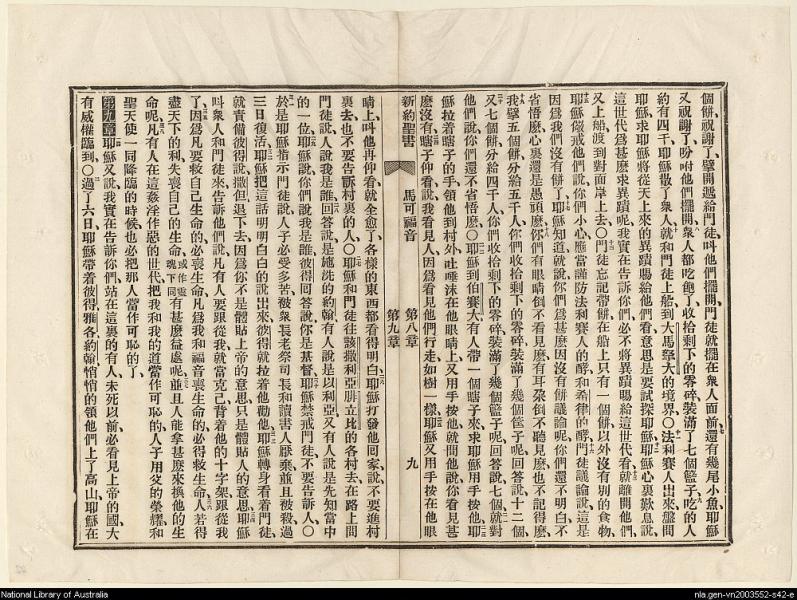 個餅祝謝了擘開遞給門徒叫他們擺開門徒就擺在衆人面前還有幾尾小魚耶穌
又祝謝了吩咐他們擺開衆人都吃飽了收拾剩下的零碎裝滿了七個籃子吃的人
約有四千耶穌散了衆人就和門徒上船到大馬拏大的境界〇法利賽人出來盤問
耶穌求耶穌將從天上來的異蹟賜給他們看意思是要試探耶穌耶穌心裏歎息說
這世代爲甚麼求異蹟呢我實在告訴你們必不將異蹟賜給這世代看就離開他們
又上船渡到對面岸上去〇門徒忘記帶餅在船上只有一個餅以外沒有別的食物
耶穌儆戒他們說你們小心應當謹防法利賽人的酵和希律的酵門徒議論說這是
因爲我們沒有餅了耶穌知道就說你們爲甚麼因沒有餅議論呢你們還不明白不
省悟麼心裏還是愚頑麼你們有眼睛倒不看見麼有耳朶倒不聽見麼也不記得麼
我擘五個餅分給五千人你們收拾剩下的零碎裝滿了幾個筐子呢回答說十二個
又七個餅分給四千人你們收拾剩下的零碎裝滿了幾個籃子呢回答說七個就對
他們說你們還不省悟麼〇耶穌到伯賽大有人帶一個瞎子來求耶穌用手按他耶
穌拉着瞎子的手領他到村外吐唾沫在他眼睛上又用手按他就問他說你看見甚
麼沒有瞎子仰看說我看見人因爲看見他們行走如樹一樣耶穌又用手按在他眼
新約聖書 馬可福音 第八章 第九章 九
睛上叫他再仰看就全愈了各樣的東西都看得明白耶穌打發他回家說不要進村
裏去也不要告訴村裏的人〇耶穌和門徒往該撒利亞腓立比的各村去在路上問
門徒說人說我是誰回答說是施洗的約翰有人說是以利亞又有人說是先知當中
的一位耶穌說你們說我是誰彼得回答說你是基督耶穌禁戒門徒不要告訴人〇
於是耶穌指示門徒說人子必受多苦被衆長老祭司長和讀書人厭棄並且被殺過
三日復活耶穌把這話明明白白的說出來彼得就拉着他勸他耶穌轉身看着門徒
就責備彼得說撒但退下去因爲你不是體貼上帝的意思只是體貼人的意思耶穌
叫衆人和門徒來告訴他們說凡有人要跟從我就當克己背着他的十字架跟從我
了因爲凡要救自己生命的必喪生命凡爲我和福音喪生命的必得救生命人若得
盡天下的利失喪自己的生命或作靈魂下同有甚麼益處呢並且人能拿甚麼來換他的生
命呢凡有人在這姦淫作惡的世代把我和我的道當作可恥的人子用父的榮耀和
聖天使一同降臨的時候也必把那人當作可恥的了
第九章耶穌又說我實在告訴你們站在這裏的有人未死以前必看見上帝的國大
有威權臨到〇過了六日耶穌帶着彼得雅各約翰悄悄的領他們上了高山耶穌在
National Library of Australia
nla.gen-vn2003552-s42-e